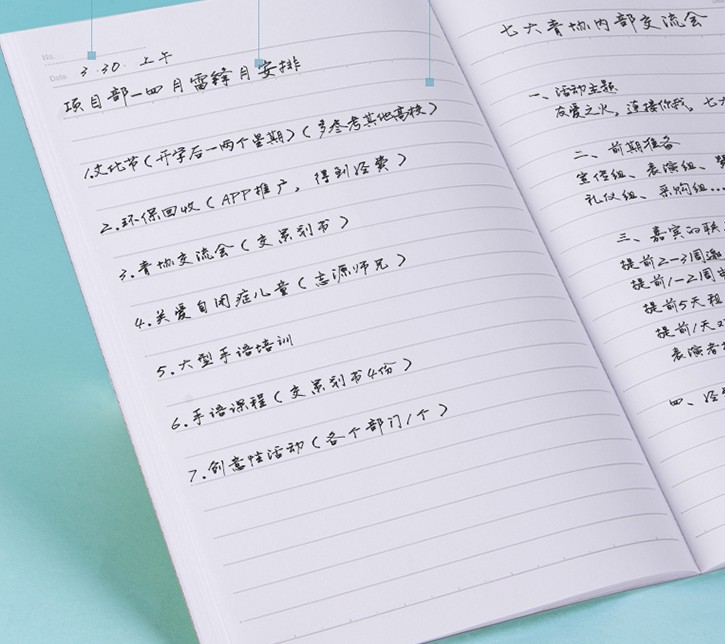 No.
Date
3.30 上午
项目部—四月雷锋月安排
1.文化节(开学后一两个星期)(多参考其他高校)
2.环保回收(APP推广,得到经费)
3.青协交流会(交策划书)
4.关爱自闭症儿童(志源师兄)
5.大型手语培训
6.手语课程(交策划书4份)
7.创意性活动(各个部门1个)
七六青协内部交流会
一、活动主题
友爱之火,连接你我,七六
二、前期准备
宣传组、表演组、
礼仪组、采购组...
三、嘉宾的联
提前2-3周邀
提前1-2周
提前5天租
提前1天
表演者
四、经